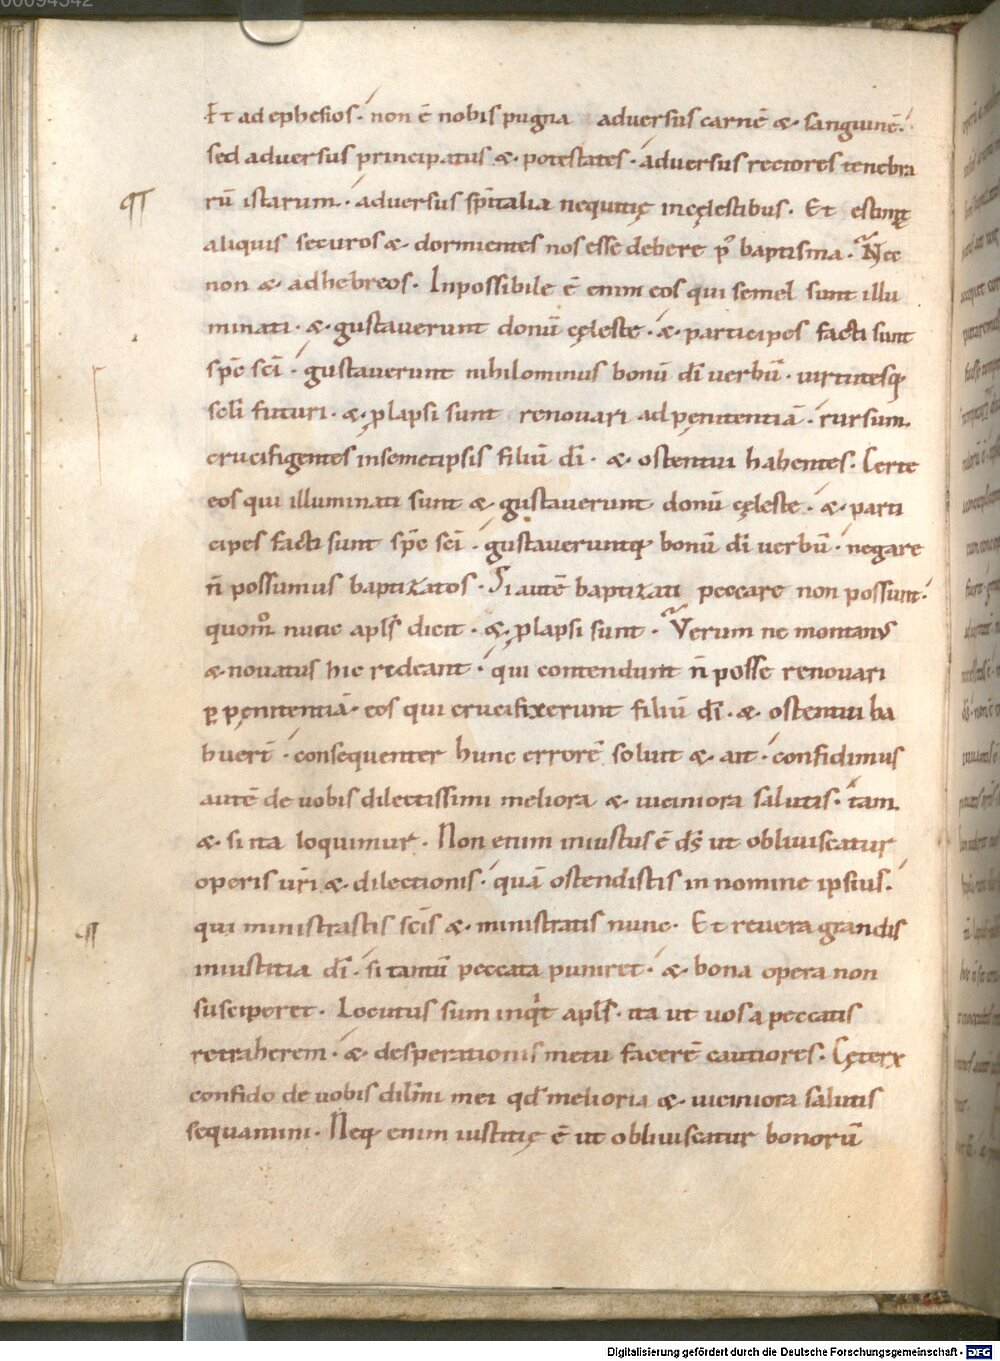 Et ad ephesios· non ē nobis pugna adversus carnē &· sanguinē·
sed adversus principatus &· potestates· adversus rectores tenebra
rū istarum· adversus spi̅talia nequitię in cęlestibus· Et estimat
aliquis securos &· dormientes nos esse debere p̓ baptisma· Nec
non &· ad hebreos· Inpossibile ē enim eos qui semel sunt illu
minati· &· gustaverunt donū cęleste· &· participes facti sunt
spc̄ sci̅· gustaverunt nihilominus bonū di̅ verbū· virtutesq;
scl̅i futuri· &· p̱lapsi sunt renovari ad pęnitentiā· rursum
crucifigentes insemetipsis filiū di̅· &· ostentui habentes· Certe
eos qui illuminati sunt &· gustaverunt donū cęleste· &· parti
cipes facti sunt spc̄ sci̅· gustaveruntq; bonū di̅ verbū· negare
n̄ possumus baptizatos· Si autē baptizati peccare non possunt·
quom̊ nunc apl̅s dicit· &· p̱lapsi sunt· Verum ne montanus
&· novatus hic rideant· qui contendunt n̄ posse renovari
ꝑ pęnitentiā· eos qui crucifixerunt filiū di̅· &· ostentui ha
buer̄· consequenter hunc errorē solvit &· ait· confidimus
autē de vobis dilectissimi meliora &· viciniora salutis· tam
&· si ita loquimur· Non enim iniustus ē ds̄ ut obliviscatur
operis vr̄i &· dilectionis· quā ostendistis in nomine ipsius·
qui ministrastis scīs &· ministratis nunc· Et revera grandis
iniustitia di̅· si tantū peccata puniret· &· bona opera non
susciperet· Locutus sum inqͥt apl̅s· ita ut vos a peccatis
retraherem· &· desperationis metu facerē cautiores· Cęterꝝ
confido de vobis dilm̄i mei qd̄ melioria &· viciniora salutis
sequamini· Neq; enim iustitię ē ut obliviscatur bonorū
Digitalisierung gefördert durch die Deutsche Forschungsgemeinschaft - DFG